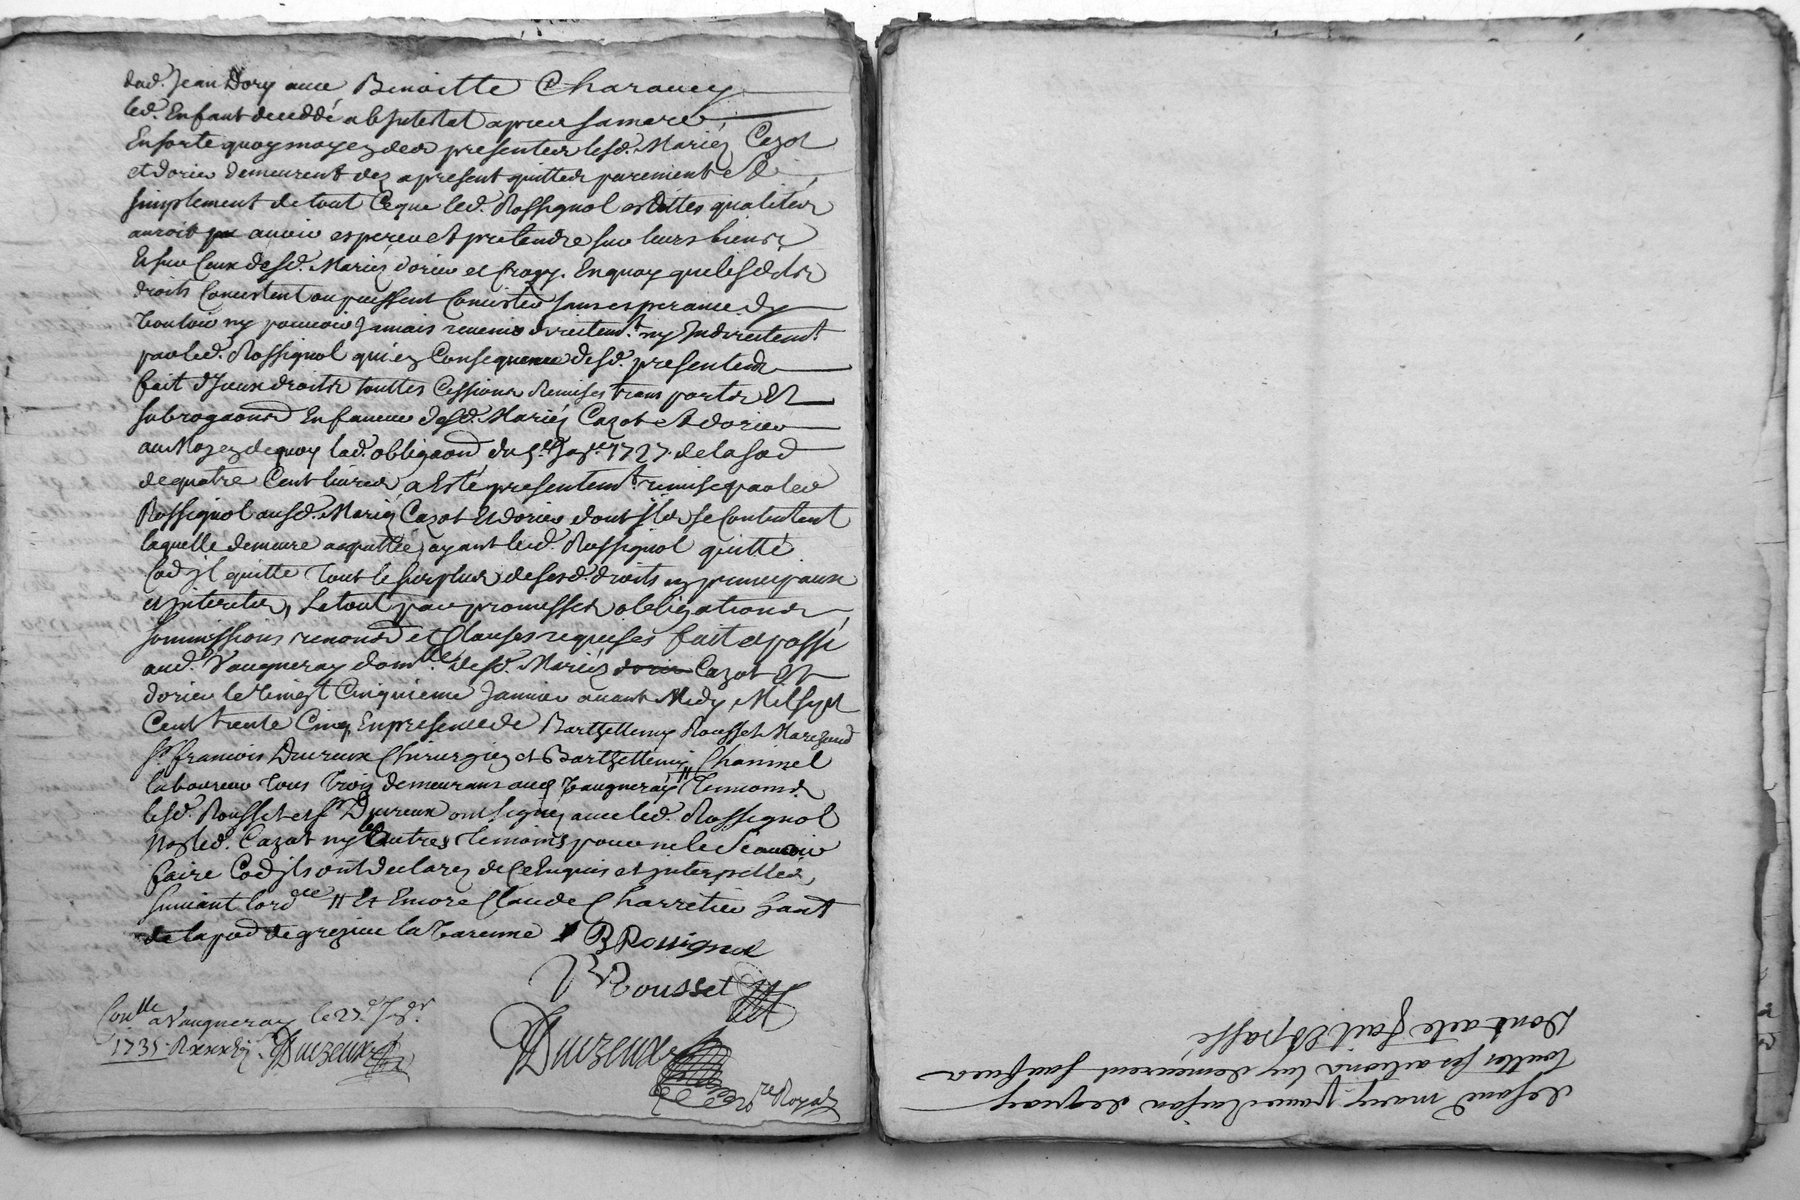 dud. Jean Dory avec Benoitte Charavey
led. Enfant deceddé ab jntestat apres sa mere
Ensorte quoy moyez des presentes lesd. Mariez Cazot
et dorieu demeurent dez apresent quittes purement Et
simplement de tout Ceque led. Rossignol esdittes qualites
auroit pu avoir esperer et pretendre sur leurs biens
Et sur Ceux desd. Mariez dorieu et Crozy. Enquoy que lesdts
droits Consistent ou puissent Consister sans esperance dy
Vouloir ny pouvoir Jamais revenir directemt. ny Indirectemt
par led. Rossignol qui ez Consequence desd. presentes
fait d'Jceux droits touttes Cessions Remises transportes Et
subrogaons En faveur desd. Mariez Cazot et dorieu
au Moyez dequoy lad. obligaon du 1727 de la sod
de quatre Cent livres a Esté presentemt. remise par led
Rossignol ausd. Mariez Cazot et dorieu dont Jls se Contentent
laquelle demeure acquittée, ayant led. Rossignol quitté
Cod jl quitte tout le surplus de sesd. droits ez principaux
et interets, Le tout par promesses obligations
sommissions renonds et Clauses requises fait et passé
aud. Vaugneray domlle desd. Mariez dorieu Cazot Et
dorieu le Vingt Cinquieme Janvier avant Midy Mil sept
Cent trente Cinq En presence de Barthellemy Rousset Marchand
sr. francois Dureux Chirurgiez et Barthellemy Chainnel
laboureur tous trois demeurans aud Vaugneray // temoins
lesd. Rousset et sr Dureux ont signez avec led. Rossignol
Noz led. Cazot ny les autres temoins pour ne le Scavoir
faire Cod jls ont declarez de ce Enquis et jnterpellés
suivant lordce // Et Encore Claude Charretier hant
de la pod de grezieu la Varenne
B Rossignol
B Rousset
Duczeux
Re Royal
Conlle a Vaugneray le 27e Jer
1735 Duczeux
desaud marez pour Raison dequoy
touttes ses actions luy demeurent sauves
Dont acte fait Et passé